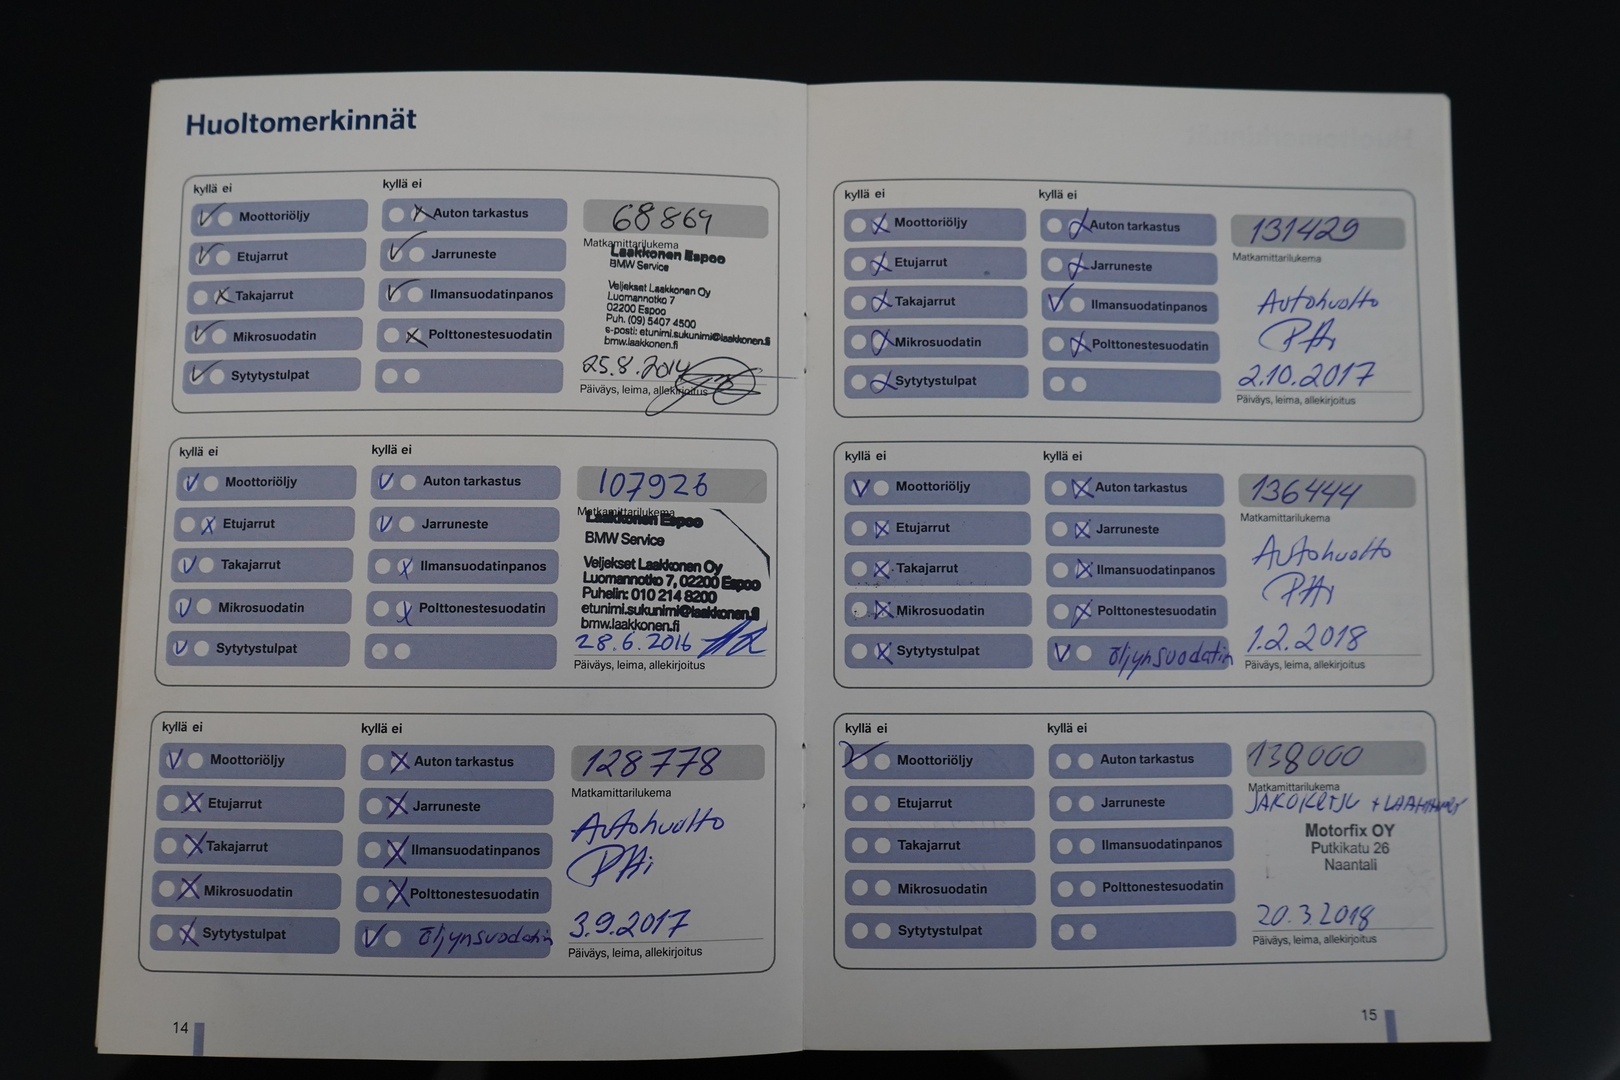 Huoltomerkinnät
kyllä ei
kyllä ei
Moottoriöljy
Auton tarkastus
Etujarrut
Jarruneste
Takajarrut
Ilmansuodatinpanos
Mikrosuodatin
Polttonestesuodatin
Sytytystulpat
68869
Matkamittarilukema
Laakkonen Espoo
BMW Service
Veljekset Laakkonen Oy
Luomannotko 7
02200 Espoo
Puh. (09) 5407 4500
e-posti: etunimi.sukunimi@laakkonen.fi
bmw.laakkonen.fi
25.8.2014
Päiväys, leima, allekirjoitus
kyllä ei
kyllä ei
Moottoriöljy
Auton tarkastus
Etujarrut
Jarruneste
Takajarrut
Ilmansuodatinpanos
Mikrosuodatin
Polttonestesuodatin
Sytytystulpat
107926
Matkamittarilukema
Laakkonen Espoo
BMW Service
Veljekset Laakkonen Oy
Luomannotko 7, 02200 Espoo
Puhelin: 010 214 8200
etunimi.sukunimi@laakkonen.fi
bmw.laakkonen.fi
28.6.2016
Päiväys, leima, allekirjoitus
kyllä ei
kyllä ei
Moottoriöljy
Auton tarkastus
Etujarrut
Jarruneste
Takajarrut
Ilmansuodatinpanos
Mikrosuodatin
Polttonestesuodatin
Sytytystulpat
öljynsuodatin
128778
Matkamittarilukema
Autohuolto
3.9.2017
Päiväys, leima, allekirjoitus
14
kyllä ei
kyllä ei
Moottoriöljy
Auton tarkastus
Etujarrut
Jarruneste
Takajarrut
Ilmansuodatinpanos
Mikrosuodatin
Polttonestesuodatin
Sytytystulpat
131429
Matkamittarilukema
Autohuolto
2.10.2017
Päiväys, leima, allekirjoitus
kyllä ei
kyllä ei
Moottoriöljy
Auton tarkastus
Etujarrut
Jarruneste
Takajarrut
Ilmansuodatinpanos
Mikrosuodatin
Polttonestesuodatin
Sytytystulpat
öljynsuodatin
136444
Matkamittarilukema
Autohuolto
1.2.2018
Päiväys, leima, allekirjoitus
kyllä ei
kyllä ei
Moottoriöljy
Auton tarkastus
Etujarrut
Jarruneste
Takajarrut
Ilmansuodatinpanos
Mikrosuodatin
Polttonestesuodatin
Sytytystulpat
138000
Matkamittarilukema
JAKOKETJU +
Motorfix OY
Putkikatu 26
Naantali
20.3.2018
Päiväys, leima, allekirjoitus
15